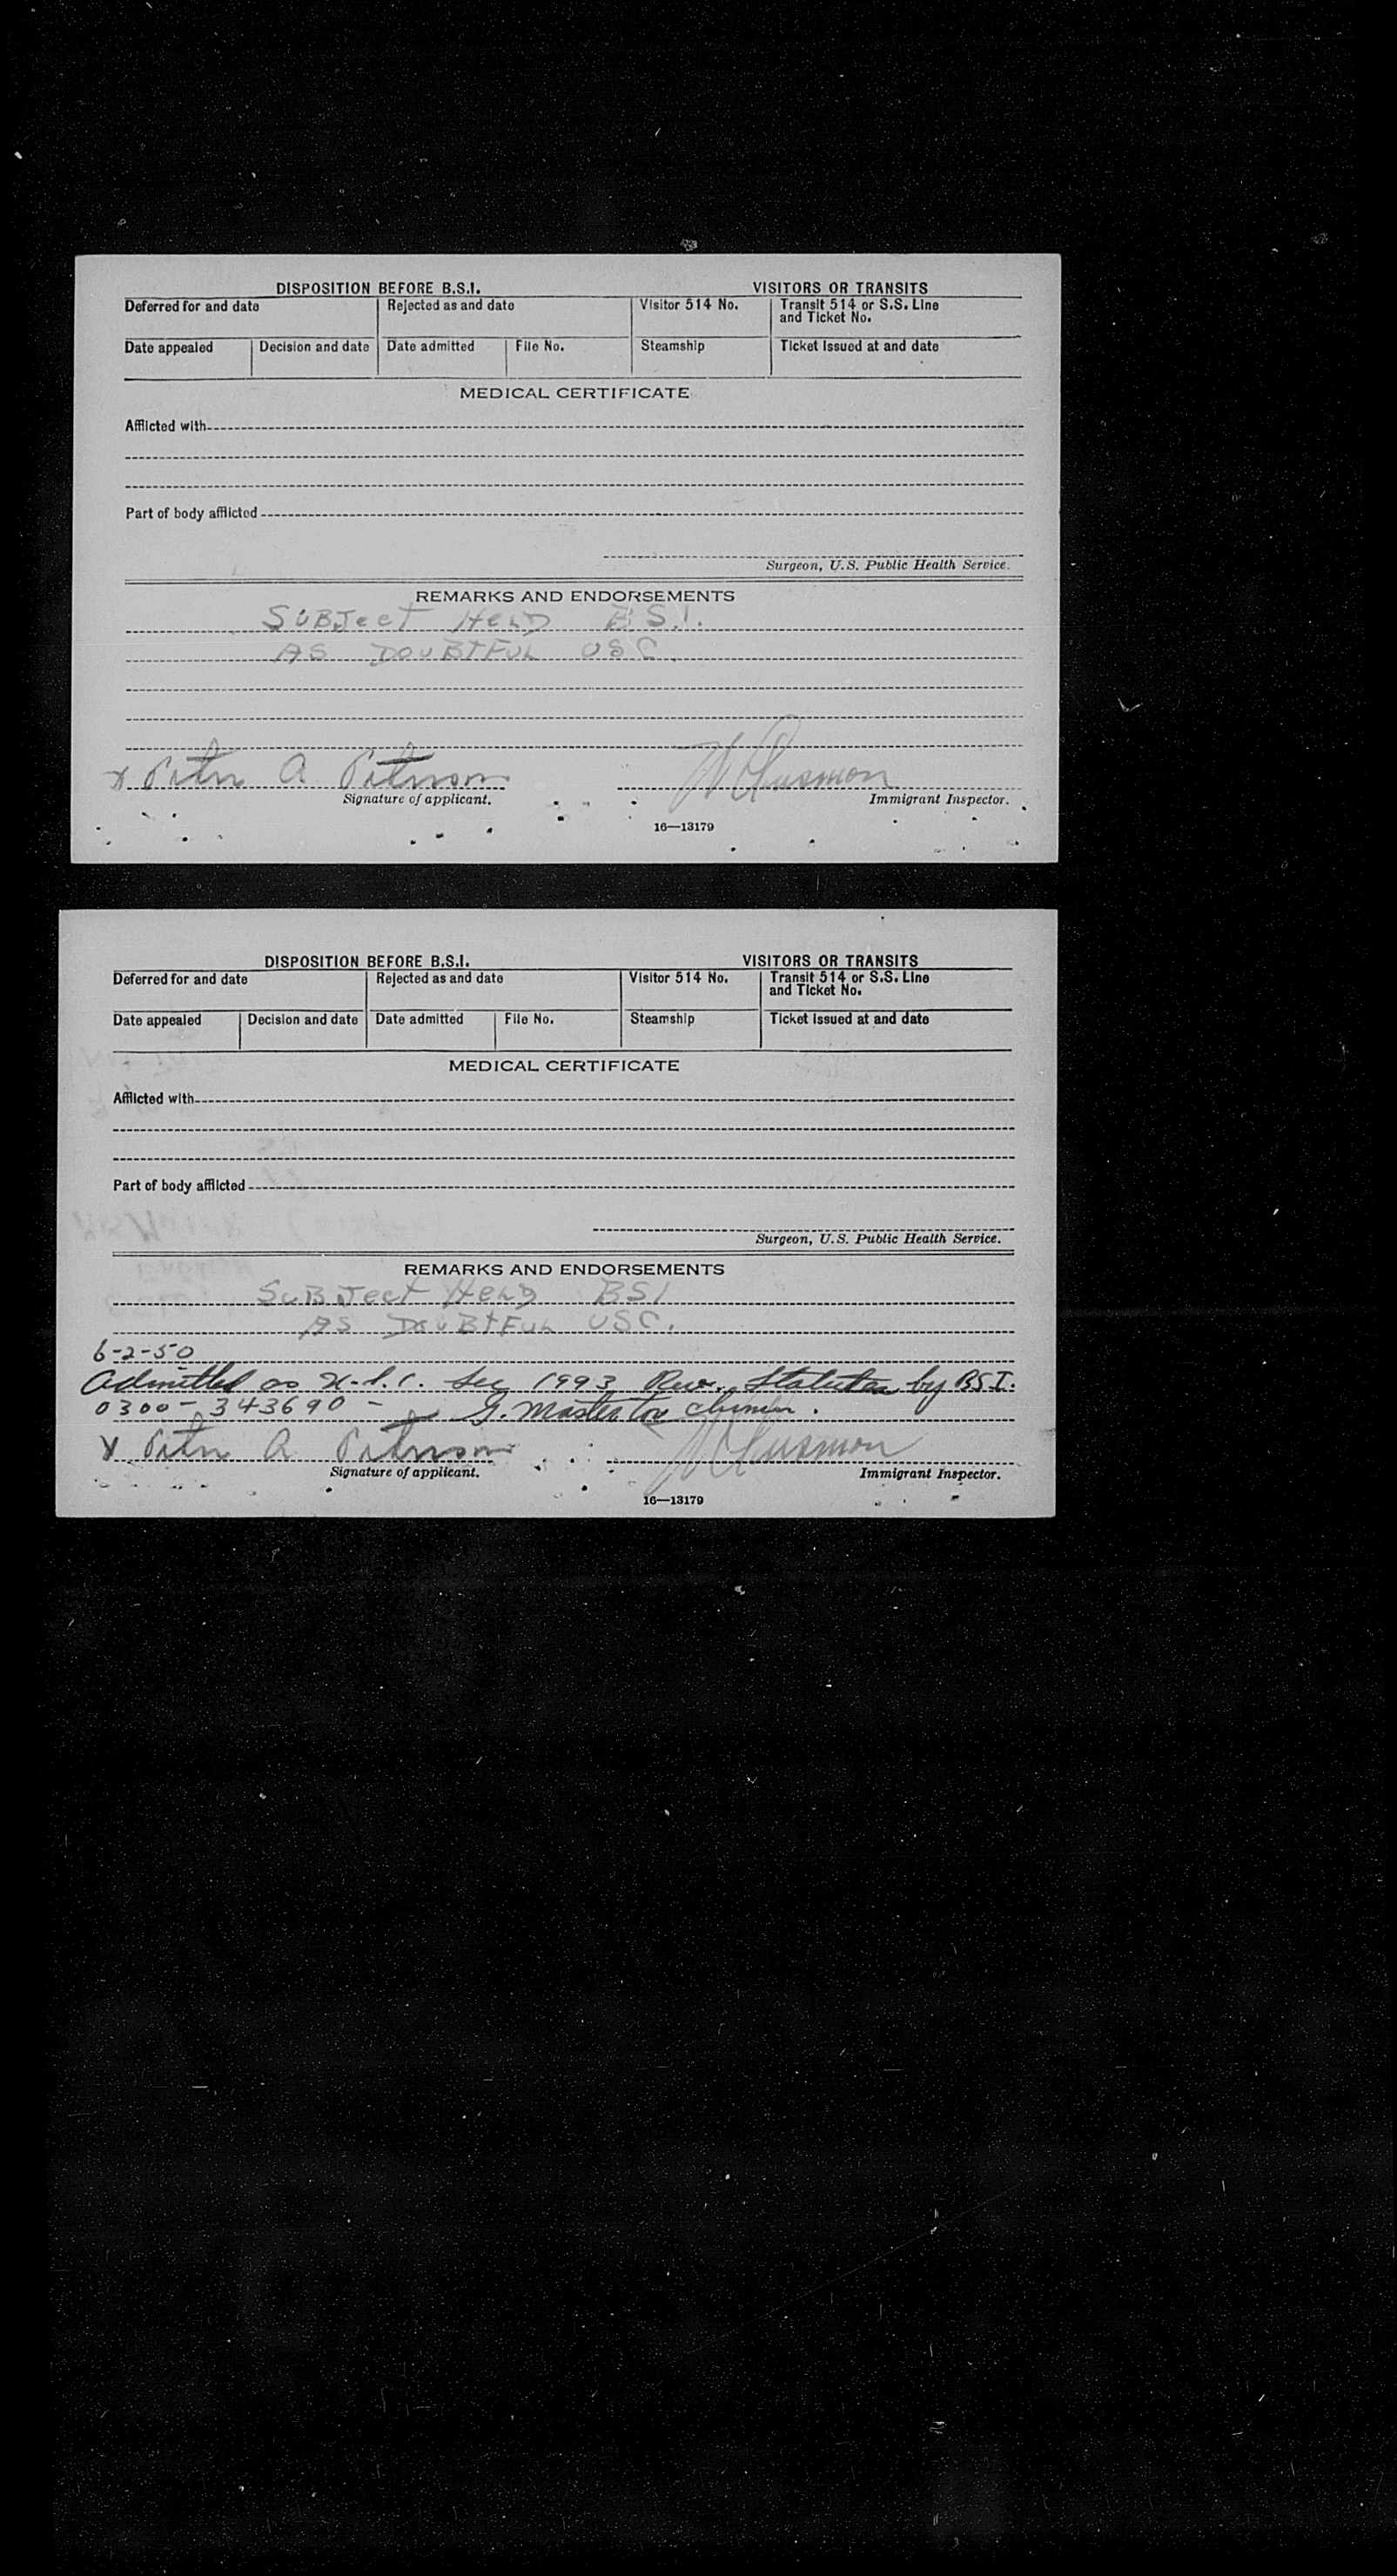 DISPOSITION BEFORE B.S.I. VISITORS OR TRANSITS
Deferred for and date Rejected as and date Visitor 514 No. Transit 514 or S.S. Line
and Ticket No.
Date appealed Decision and date Date admitted File No. Steamship Ticket issued at and date
MEDICAL CERTIFICATE
Afflicted with
Part of body afflicted
Surgeon, U.S. Public Health Service.
REMARKS AND ENDORSEMENTS
SUBJect HELD B.S.I.
AS DOUBtFUL USC
x Peter A Peterson
Signature of applicant. Immigrant Inspector.
16—13179
DISPOSITION BEFORE B.S.I. VISITORS OR TRANSITS
Deferred for and date Rejected as and date Visitor 514 No. Transit 514 or S.S. Line
and Ticket No.
Date appealed Decision and date Date admitted File No. Steamship Ticket issued at and date
MEDICAL CERTIFICATE
Afflicted with
Part of body afflicted
Surgeon, U.S. Public Health Service.
REMARKS AND ENDORSEMENTS
SUBJect HELD BSI
AS DOUBtFUL USC.
6-2-50
Admitted as U.S.C. Sec 1993 Rev. Statutes by BSI.
0300-343690 - G. Masterton
x Peter A Peterson
Signature of applicant. Immigrant Inspector.
16—13179